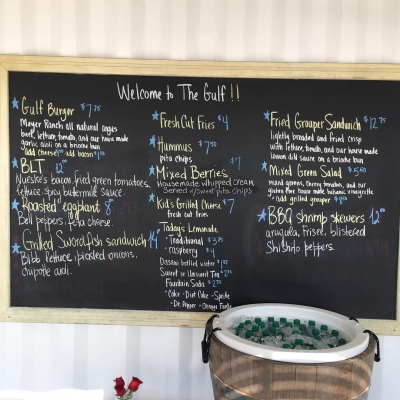 Welcome to The Gulf!!
Gulf Burger $7.75
Meyer Ranch all natural angus
beef, lettuce, tomato, and our house made
garlic aioli on a brioche bun
add cheese add bacon $1.50
BLT 12
Nueske's bacon, fried green tomatoes,
lettuce, spicy buttermilk sauce.
Roasted eggplant 8
Bell peppers, feta cheese.
Grilled Swordfish sandwich 14
Bibb lettuce, pickled onions,
chipotle aioli.
Fresh Cut Fries $4
Hummus $7.50
pita chips
Mixed Berries $7
Housemade whipped cream
Served w/ sweet pita chips
Kid's Grilled Cheese $7
fresh cut fries
Today's Lemonade
- Traditional $3.75
- raspberry $4
Dasani bottled water
Sweet or Unsweet Tea
Fountain Soda $2.75
- Coke - Diet Coke - Sprite
- Dr. Pepper - Orange Fanta
Fried Grouper Sandwich $12.75
lightly breaded and fried crisp
with lettuce, tomato, and our house made
lemon dill sauce on a brioche bun
Mixed Green Salad $5.50
mixed greens, cherry tomatoes, and our
gluten free house made balsamic vinaigrette
add grilled grouper
BBQ shrimp skewers 12.00
arugula, Frisee, blistered
Shishito peppers.